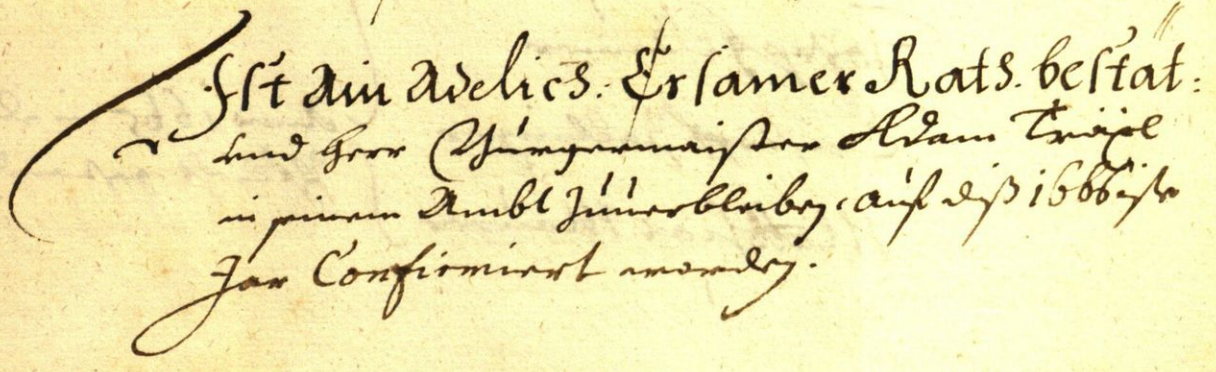 Ist Ain Adelich: Ersamer Rath bestät:
und Herr Bürgermaister Adam
in seinem Ambt Zuuerbleiben, auf diß 1666iste
Jar Confirmiert worden.